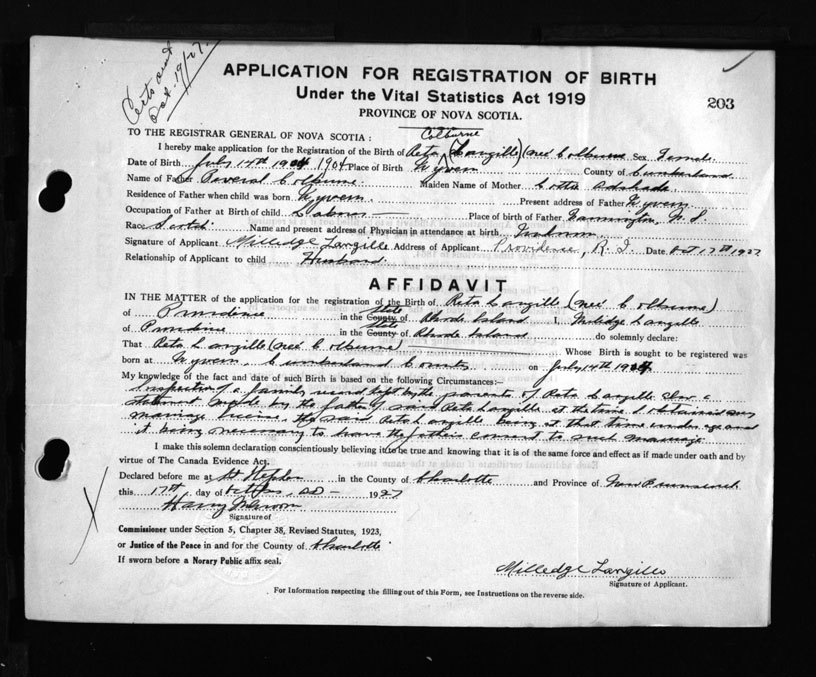 Certs and
Oct. 19/27.
APPLICATION FOR REGISTRATION OF BIRTH
Under the Vital Statistics Act 1919
203
PROVINCE OF NOVA SCOTIA.
TO THE REGISTRAR GENERAL OF NOVA SCOTIA :
Colburne
I hereby make application for the Registration of the Birth of Reta (Langille) (nee Colburne Sex Female
Date of Birth July 14th 1904 1904 Place of Birth Wyvern County of Cumberland
Name of Father Colburne Maiden Name of Mother Lotta
Residence of Father when child was born Wyvern Present address of Father Wyvern
Occupation of Father at Birth of child Labour Place of birth of Father Farmington, N.S.
Race Scotch Name and present address of Physician in attendance at birth Unknown
Signature of Applicant Milledge Langille Address of Applicant Providence, R.I. Date Oct 17th 1927
Relationship of Applicant to child Husband.
AFFIDAVIT
IN THE MATTER of the application for the registration of the Birth of Reta Langille (nee Colburne)
of Providence in the County of State Rhode Island I, Milledge Langille
of Providence in the County of State Rhode Island do solemnly declare:
That Reta Langille (nee Colburne) Whose Birth is sought to be registered was
born at Wyvern, Cumberland County on July 14th 1904
My knowledge of the fact and date of such Birth is based on the following Circumstances:—
Inspection of a family record kept by the parents of Reta Langille also a
statement made by the father of said Reta Langille at the time I obtained my
marriage license, the said Reta Langille being at that time under age and
it being necessary to have the fathers consent to such marriage
I make this solemn declaration conscientiously believing it to be true and knowing that it is of the same force and effect as if made under oath and by
virtue of The Canada Evidence Act.
Declared before me at St Stephen in the County of Charlotte and Province of New Brunswick
this 17th day of October, AD 1927
Harry
Signature of
Commissioner under Section 5, Chapter 38, Revised Statutes, 1923,
or Justice of the Peace in and for the County of Charlotte
If sworn before a Norary Public affix seal.
Milledge Langille
Signature of Applicant.
For Information respecting the filling out of this Form, see Instructions on the reverse side.